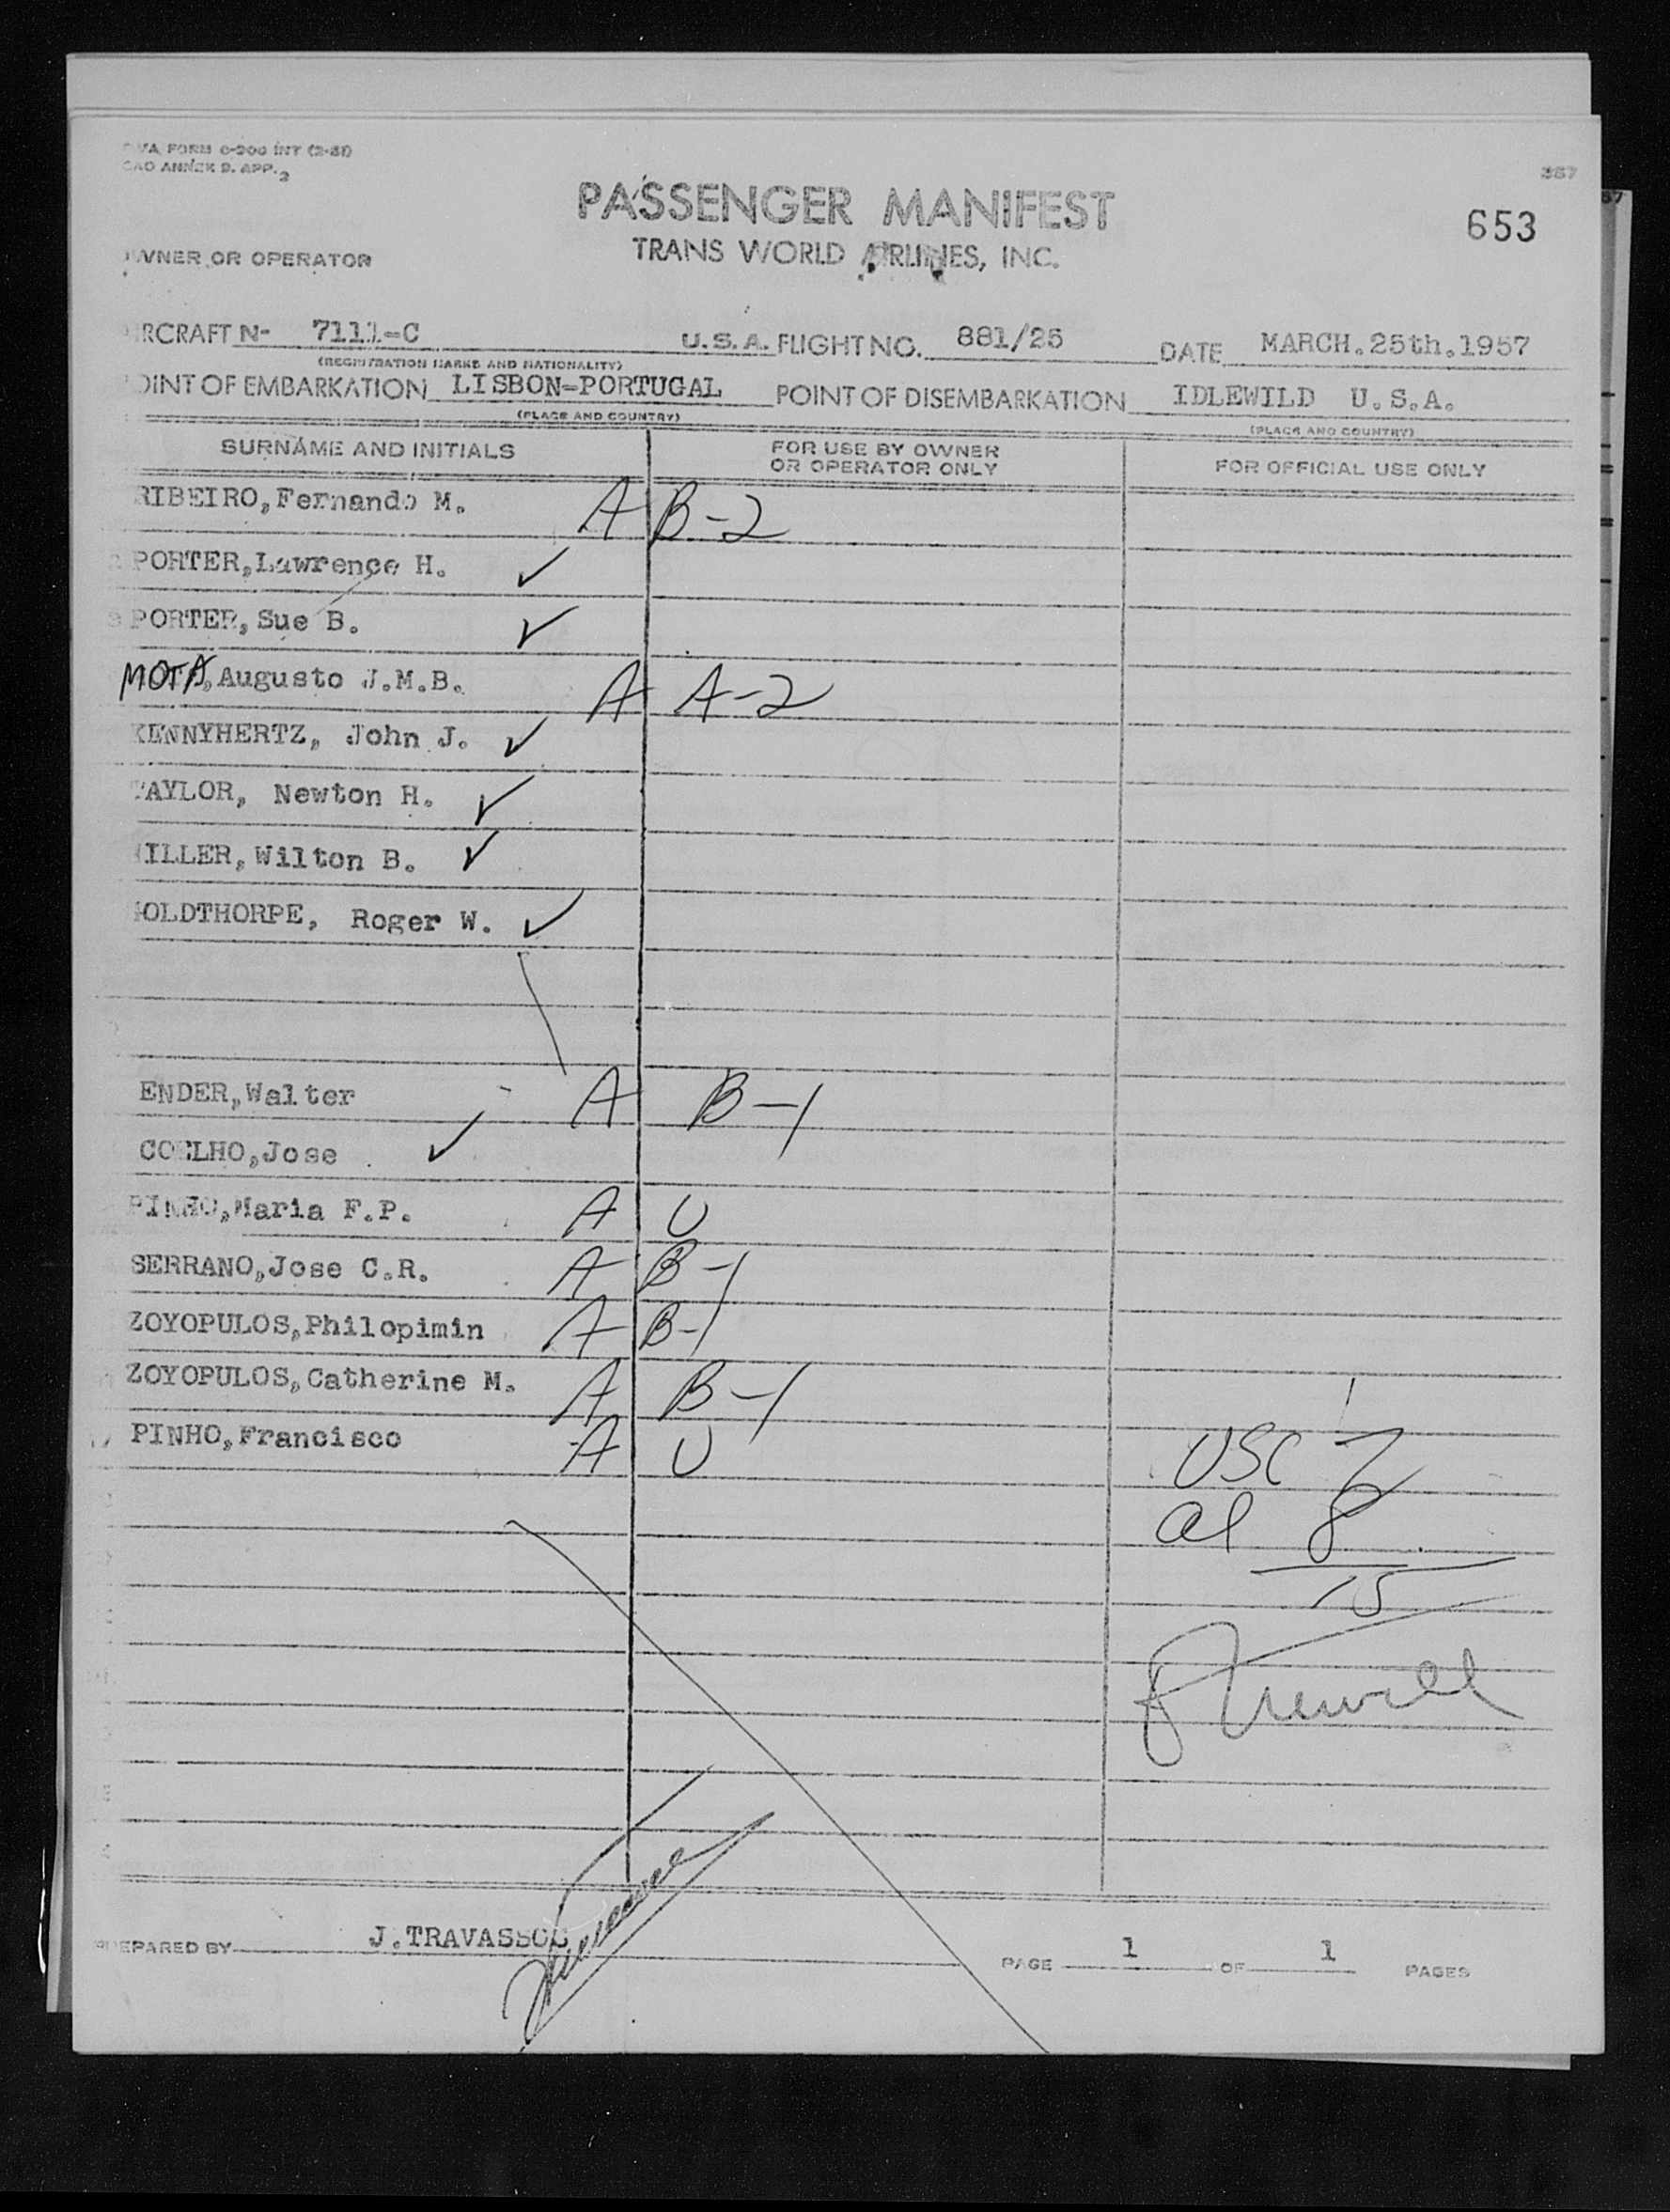 FORM 0-200 INT (2-51)
ANNEX 9. APP. 2
357
PASSENGER MANIFEST
653
TRANS WORLD AIRLINES, INC.
OWNER OR OPERATOR
AIRCRAFT N- 7111-C U.S.A. FLIGHT NO. 881/25 DATE MARCH.25th.1957
(REGISTRATION MARKS AND NATIONALITY)
POINT OF EMBARKATION LISBON-PORTUGAL POINT OF DISEMBARKATION IDLEWILD U.S.A.
(PLACE AND COUNTRY) (PLACE AND COUNTRY)
SURNAME AND INITIALS FOR USE BY OWNER OR OPERATOR ONLY FOR OFFICIAL USE ONLY
RIBEIRO,Fernando M. A B-2
PORTER,Lawrence H. ✓
PORTER,Sue B. ✓
MOTA,Augusto J.M.B. A A-2
KENNYHERTZ, John J. ✓
TAYLOR, Newton H. ✓
ILLER,Wilton B. ✓
OLDTHORPE, Roger W. ✓
ENDER,Walter A B-1
COELHO,Jose ✓
PINHO,Maria F.P. A U
SERRANO,Jose C.R. A B-1
ZOYOPULOS,Philopimin A B-1
ZOYOPULOS,Catherine M. A B-1
PINHO,Francisco A U
USC 7
al 8
15
PREPARED BY J.TRAVASSOS
PAGE 1 OF 1 PAGES